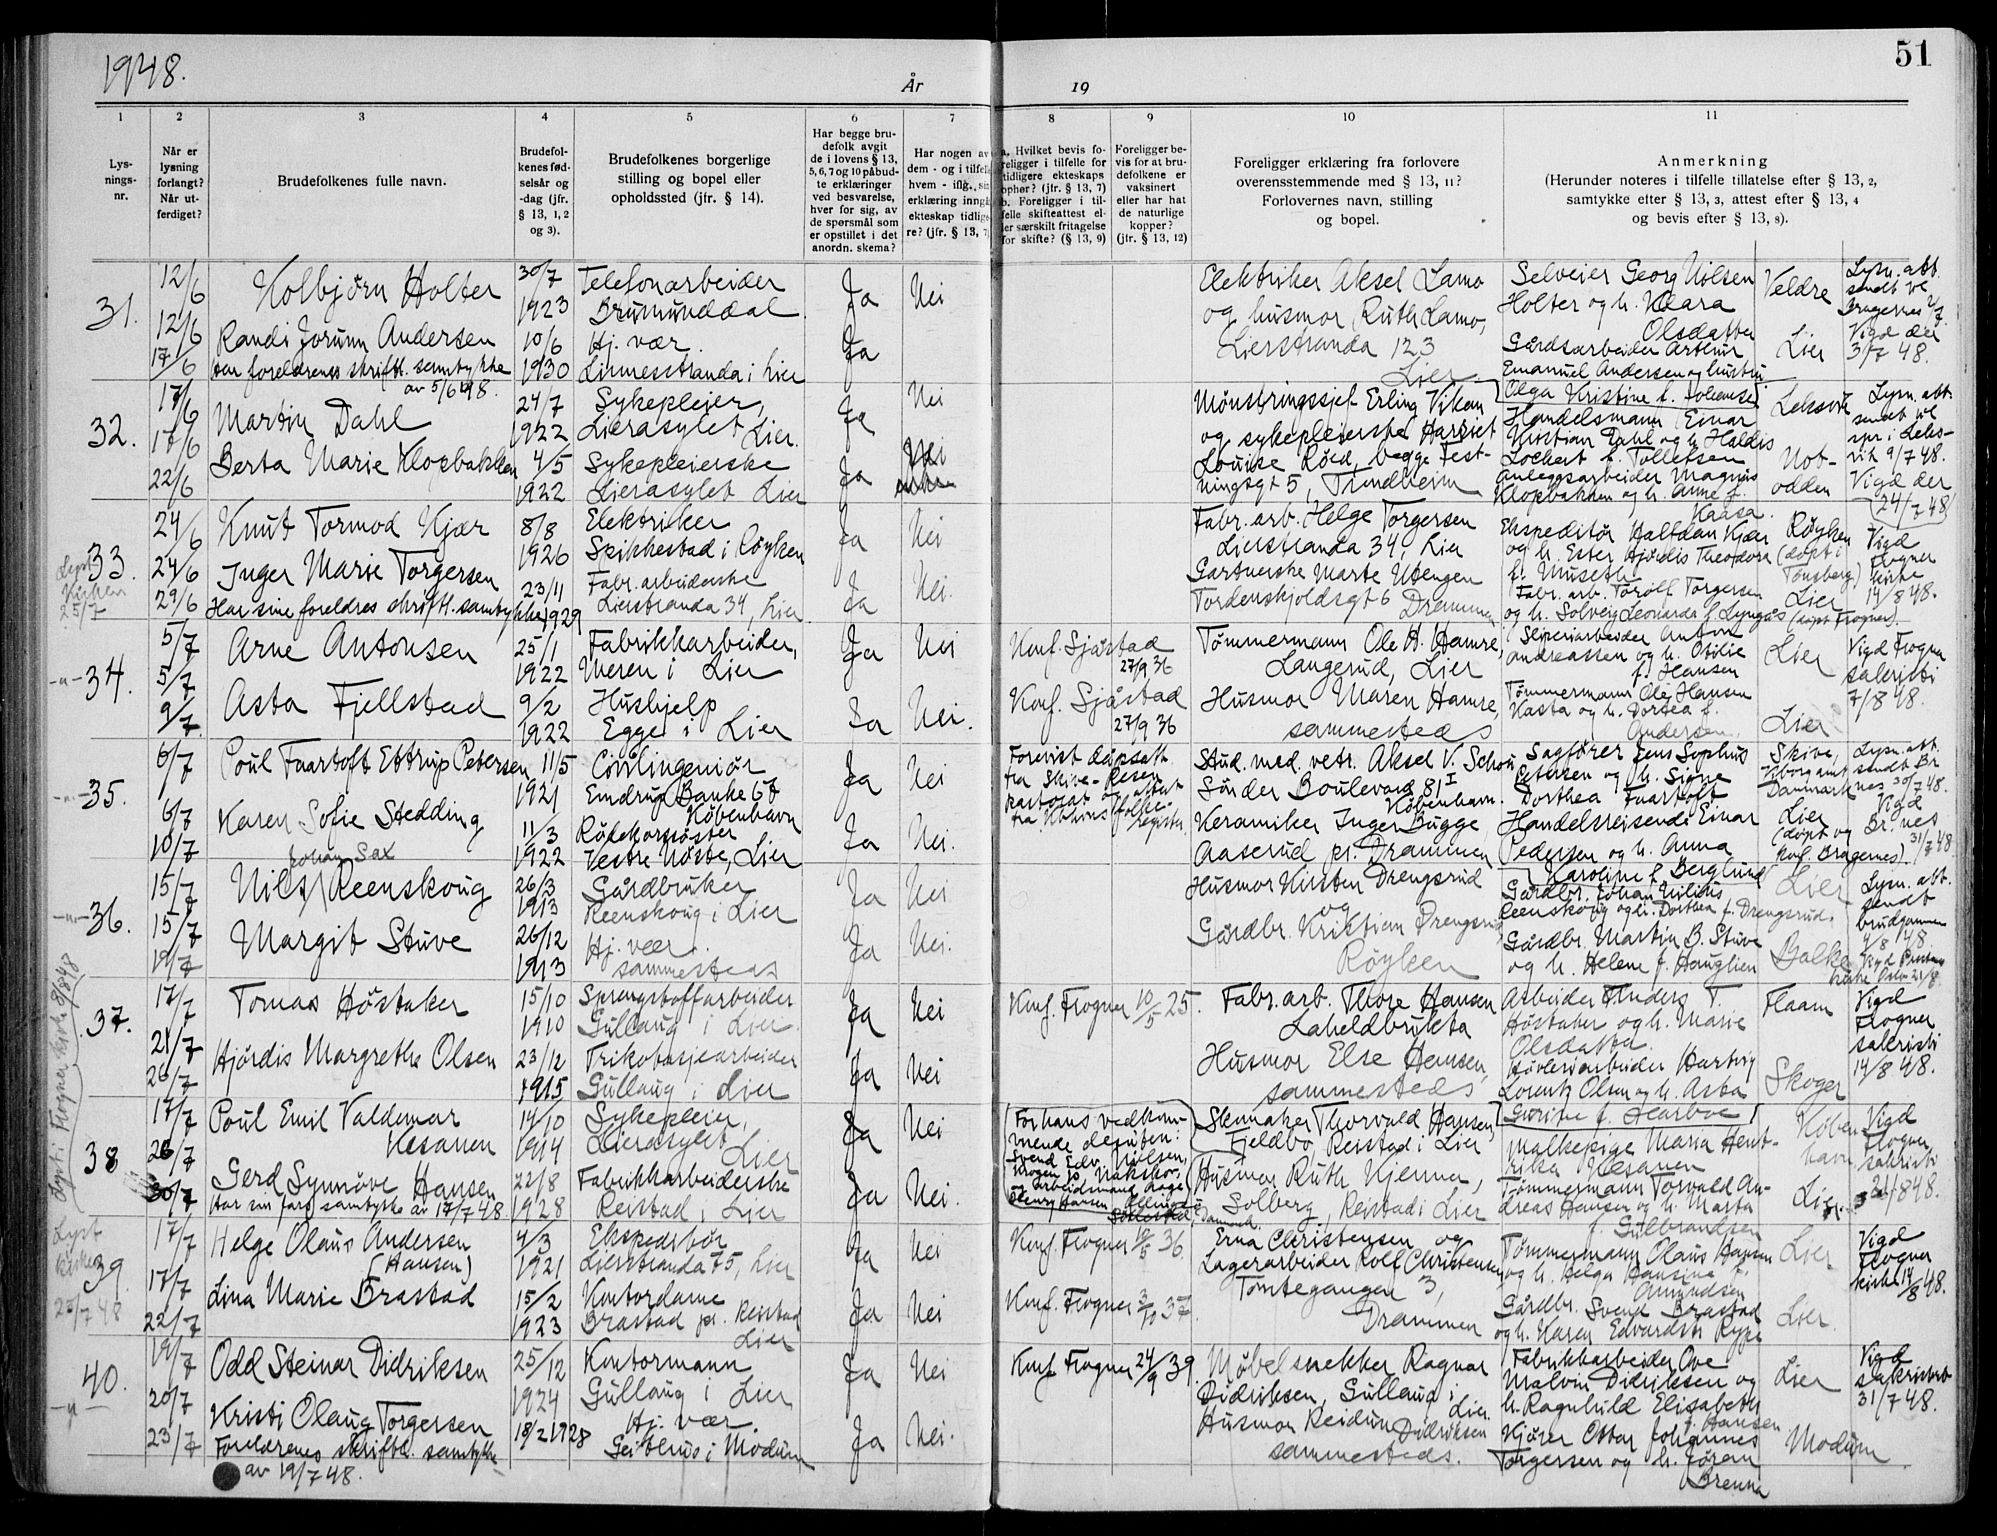 1948.
År
19
51
1
2
3
4
5
6
7
8
9
10
11
Lys-
nings-
nr.
Når er
lysning
forlangt?
Når ut-
ferdiget?
Brudefolkenes fulle navn.
Brudefol-
kenes fød-
selsår og
-dag (jfr.
§ 13, 1, 2
og 3).
Brudefolkenes borgerlige
stilling og bopel eller
opholdssted (jfr. § 14).
Har begge bru-
defolk avgit
de i lovens § 13,
5, 6, 7 og 10 påbud-
te erklæringer
ved besvarelse,
hver for sig, av
de spørsmål som
er opstillet i det
anordn. skema?
Har nogen av
dem - og i tilfelle
hvem - iflg. sin
erklæring inngå
ekteskap tidlige-
re? (jfr. § 13, 7
a. Hvilket bevis fo-
religger i tilfelle for
tidligere ekteskaps
ophør? (jfr. § 13, 7)
b. Foreligger i til-
felle skifteattest el-
ler særskilt fritagelse
for skifte? (§ 13, 9)
Foreligger be-
vis for at bru-
defolkene er
vaksinert
eller har hat
de naturlige
kopper?
(jfr. § 13, 12)
Foreligger erklæring fra forlovere
overensstemmende med § 13, 11?
Forlovernes navn, stilling
og bopel.
Anmerkning
(Herunder noteres i tilfelle tillatelse efter § 13, 2,
samtykke efter § 13, 3, attest efter § 13, 4
og bevis efter § 13, 8).
31.
12/6
12/6
17/6
Kolbjørn Holter
Randi Jorunn Andersen
Har foreldrenes skriftl. samtykke
av 5/6 48.
30/7
1923
10/6
1930
Telefonarbeider
Brumunddal.
Hj. vær.
Linnesstranda i Lier
Ja
Ja
Nei
Elektriker Aksel Lamo
og husmor Ruth Lamo,
Lierstranda 123
Lier
Selveier Georg Nilsen
Holter og h. Klara
Olsdatter
Gårdsarbeider Arthur
Emanuel Andersen og hustru
Olga Kristine f. Johansen
Veldre
Lier
Lysn. att.
sendt
Bragernes 2/7.
Vigd der
31/7 48.
32.
17/6
17/6
22/6
Martin Dahl
Berta Marie Klopbakken
24/7
1922
4/5
1922
Sykepleier,
Lierasylet Lier.
Sykepleierske
Lierasylet Lier
Ja
Ja
Nei
Nei
Mønstringssjef Erling Vikan
og sykepleierske Harriet
Louise Røed, begge Fest-
ningsgt 5, Trondheim
Handelsmann Einar
Kristian Dahl og h. Haldis
Lockert f. Tollefsen
Anleggsarbeider Magnus
Klopbakken og h. Anne f.
Kaasa.
Leksvik
Not-
odden
Lysn. att.
sendt
spr i Leks-
vik 9/7 48.
Vigd der
24/7 48
33.
24/6
24/6
29/6
Lyst
Kirken
25/7
Knut Tormod Kjær
Inger Marie Torgersen
Har sine foreldres skriftl. samtykke
8/8
1926
23/11
1929
Elektriker
Spikkestad i Røyken
Fabr. arbeiderske
Lierstranda 34, Lier
Ja
Ja
Nei
Nei.
Fabr. arb. Helge Torgersen
Lierstranda 34, Lier
Gartnerske Marte Utengen
Tordenskjoldsgt 6 Drammen
Ekspeditør Halfdan Kjær
og h. Ester Hjørdis Theodora
f. Museth
Fabr. arb. Torolf Torgersen
og h. Solveig Leonarda f. Lyngås (døpt Frogner).
Røyken
(døpt i
Tønsberg)
Lier
Vigd
Frogner
kirke
14/8 48.
-"-
34.
5/7
5/7
9/7
Arne Antonsen
Asta Fjellstad
25/1
1922
9/2
1922
Fabrikkarbeider,
Meren i Lier
Hushjelp
Egge i Lier
Ja
Ja
Nei
Nei.
Konf. Sjåstad
27/9 36
Konf. Sjåstad
27/9 36
Tømmermann Ole H. Hamre,
Langerud, Lier
Husmor Maren Hamre,
sammesteds
Sliperiarbeider Anton
Andreassen og h. Otilie
f. Hansen
Tømmermann Ole Hansen
Kasta og h. Dortea f.
Andersen.
Lier
Lier
Vigd Frogner
sakristi
7/8 48.
-"-
35.
6/7
6/7
10/7
Poul Faartoft Ettrup Petersen
Karen Sofie Stedding
11/5
1921
11/3
1922
Civilingeniør
Emdrup Banke 67
København
Rødekorssøster
Vestre Nøste, Lier
Ja
Ja
Nei
Nei.
Forevist dåpsatt.
fra Skive-Resen
pastorat og attest
fra Kbhvns folke-
register.
Stud. med. vetr. Aksel V. Schou
Sønder Boulevard 81 I
København.
Keramiker Inger Bugge
Aaserud pr. Drammen
Sagfører Jens Sophus
Petersen og h. Signe
Dorthea Faartoft
Handelsreisende Einar
Pedersen og h. Anna
Karoline f. Berglund
Skive,
Viborg amt
Danmark
Lier
(døpt og
konf. Bragernes).
Lysn. att.
sendt Br.
nes 30/7 48.
Vigd
Br.nes
31/7 48.
-"-
36.
15/7
15/7
19/7
Johan Sax
Nils Reenskoug
Margit Stuve
26/3
1913
26/12
1913
Gårdbruker
Reenskoug i Lier
Hj. vær.
sammesteds
Ja
Ja
Nei
Nei.
Husmor Kirsten Drengsrud
og
Gårdbr. Kristian Drengsrud
Røyken
Gårdbr. Johan Nilius
Reenskoug og h. Dorthea f. Drengsrud.
Gårdbr. Martin B. Stuve
og h. Helene f. Hauglien
Lier
Balke
Lysn. att.
sendt
brudgommen
4/8 48
Lyst i Frogner kirke 8/8 48
37.
17/7
21/7
26/7
Tomas Høstaker
Hjørdis Margrethe Olsen
15/10
1910
23/12
1915
Sprengstoffarbeider
Gullaug i Lier.
Trikotasjearbeider
Gullaug i Lier
Ja
Ja
Nei
Nei
Konf. Frogner 10/5 25.
Fabr. arb. Thore Hansen
Laheldbrukta
Husmor Else Hansen,
sammesteds
Arbeider Anders T.
Høstaker og h. Marie
Olsdatter.
Høvleriarbeider Hartvig
Lorentz Olsen og h. Asta
Gurine f. Hearboe
Flaam
Skoger
Vigd
Frogner
sakristi
14/8 48.
38
17/7
26/7
30/7
Poul Emil Valdemar
Kesanen
Gerd Synnøve Hansen
Har sin fars samtykke av 17/7 48
14/10
1914
22/8
1928
Sykepleier,
Lierasylet
Lier
Fabrikkarbeiderske
Reistad, Lier
Ja
Ja
Nei
Nei.
For hans vedkom-
mende deponen:
Svend Edv. Nielsen,
Krogen 10 Nakskov
og arbeidsmand Aage
Henry Hansen
Danmark.
Skomaker Thorvald Hansen,
Fjeldbo Reistad i Lier
Husmor Ruth Kjenner,
Solberg, Reistad i Lier
Malkepige Maria Hent-
rika Kesanen
Tømmermann Torvald An-
dreas Hansen og h. Marta
f. Gulbrandsen
Køben-
havn
Lier.
Vigd
Frogner
sakristi
21/8 48.
Lyst
kirken
25/7 48
39.
17/7
17/7
22/7
Helge Olaus Andersen
(Hansen)
Lina Marie Brastad
4/3
1921
15/2
1923
Ekspeditør
Lierstranda 75, Lier
Kontordame
Brastad pr. Reistad
Lier
Ja
Ja
Nei
Nei
Konf. Frogner 10/5 36.
Konf. Frogner 3/10 37.
Erna Christensen og
Lagerarbeider Rolf Christensen
Tomtegangen 3,
Drammen
Tømmermann Olaus Hansen
og h. Helga Hansine f.
Amundsen
Gårdbr. Svend Brastad
og h. Karen Edvardsti Rype
Lier
Lier.
Vigd
Frogner
kirke 14/8 48.
-"-
40.
19/7
20/7
23/7
Odd Steinar Didriksen
Kristi Olaug Torgersen
Foreldrenes skriftl. samtykke
av 19/7 48.
25/12
1924
18/2 1928
Kontormann
Gullaug i Lier
Hj. vær.
Geithus i Modum
Ja
Ja
Nei
Nei.
Konf Frogner 24/9 39.
Møbelsnekker Ragnar
Didriksen, Gullaug i
Lier.
Husmor Reidun Didriksen
sammesteds.
Fabrikkarbeider Ove
Malvin Didriksen og
h. Ragnhild Elisabeth
f. Hansen
Kjører Ottar Johannes
Torgersen og h. Jøran
Brenna
Lier
Modum
Vigd
sakristiet
31/7 48.